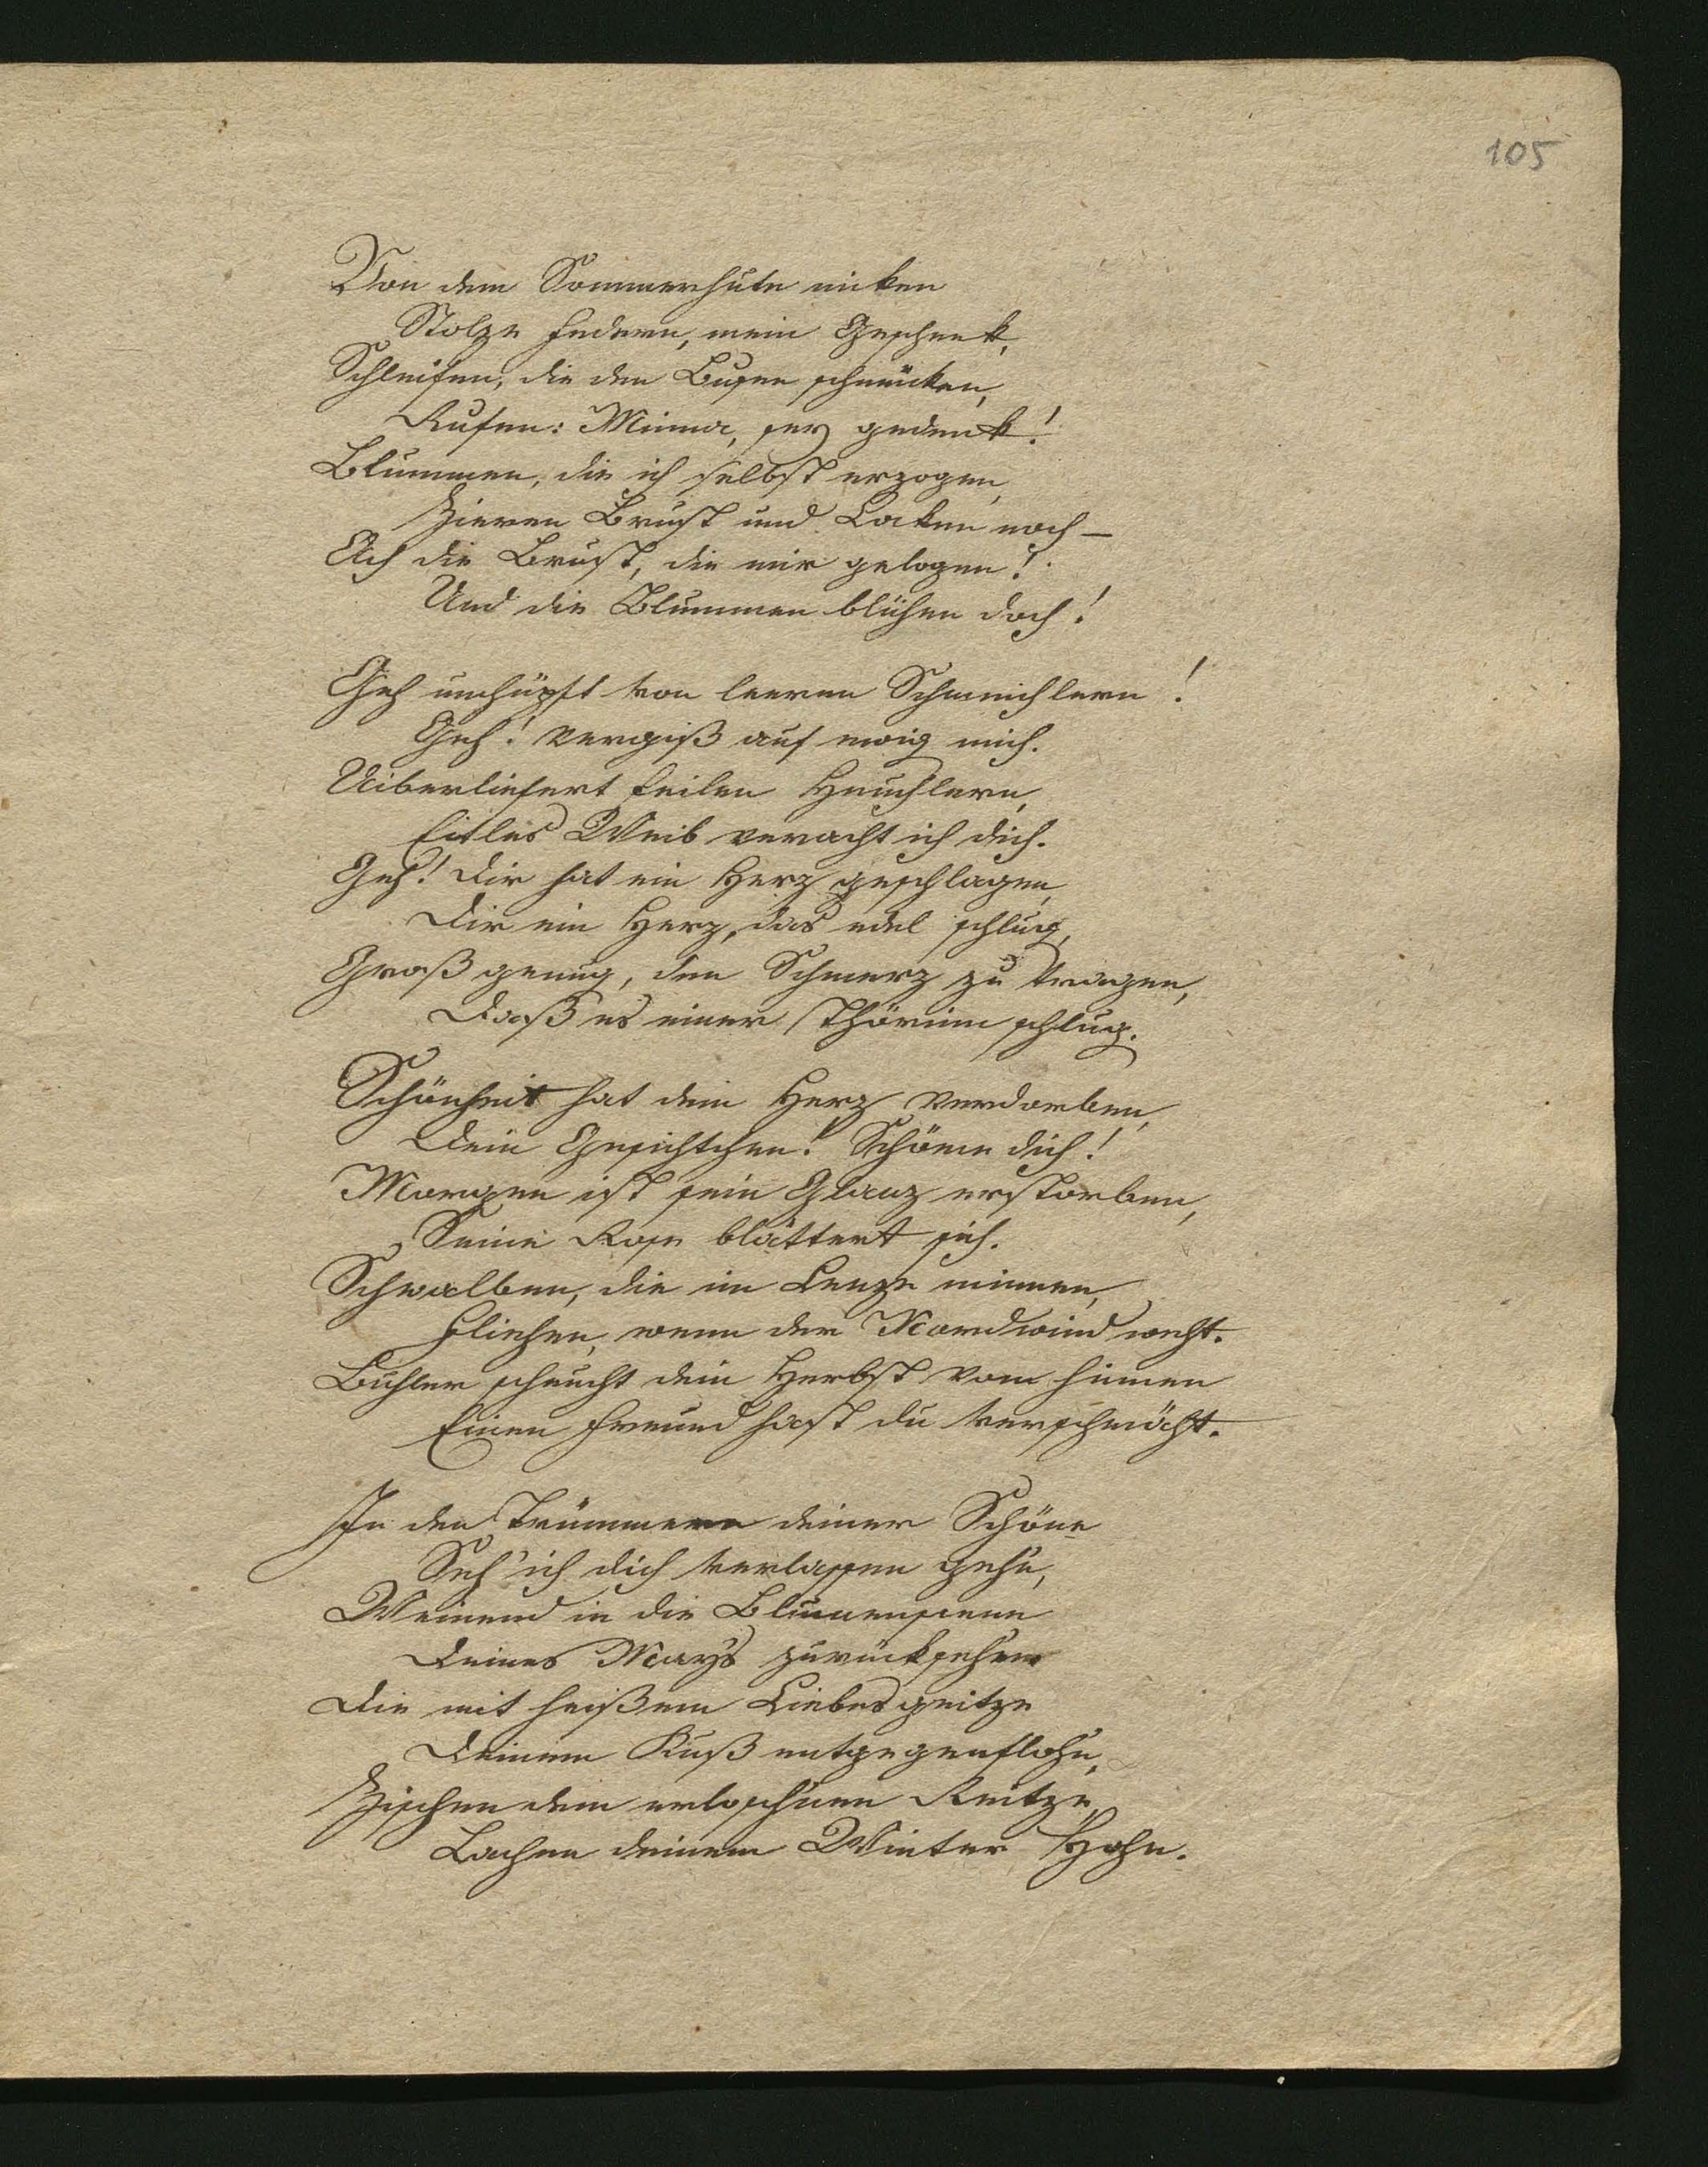 105
Von dem Sommerhute niken
Stolze Federn, mein Geschenk,
Schleifen, die den Busen schmüken,
Rufen: Minna, sey gedenk!
Blummen, die ich selbst erzogen,
Zieren Brust und Loken noch –
Ach die Brust, die mir gelogen!
Und die Blummen blühen doch!
Geh umhüpft von leeren Schmeichlern!
Geh! vergiß auf ewig mich.
Uiberliefert feilen Heuchlern,
Eitles Weib veracht ich dich.
Geh! dir hat ein Herz geschlagen,
Dir ein Herz, das edel schlug,
Groß genug, den Schmerz zu tragen,
Daß es einer Thörinn schlug.
Schönheit hat dein Herz verdorben,
Dein Gesichtchen! Schäme dich!
Morgen ist sein Glanz erstorben,
Seine Rose blättert sich.
Schwalben, die im Lenze minnen,
Fliehen, wenn der Nordwind weht.
Buhler scheucht dein Herbst von hinnen
Einen Freund hast du verschmäht.
In den Trümmern deiner Schöne
Seh' ich dich verlassen gehn,
Weinend in die Blumenscene
Deines May's zurücksehen
Die mit heißem Liebesgeitze
Deinem Kuß entgegenflohn,
Zischen dem erloschnen Reitze
Lachen deinem Winter Hohn.